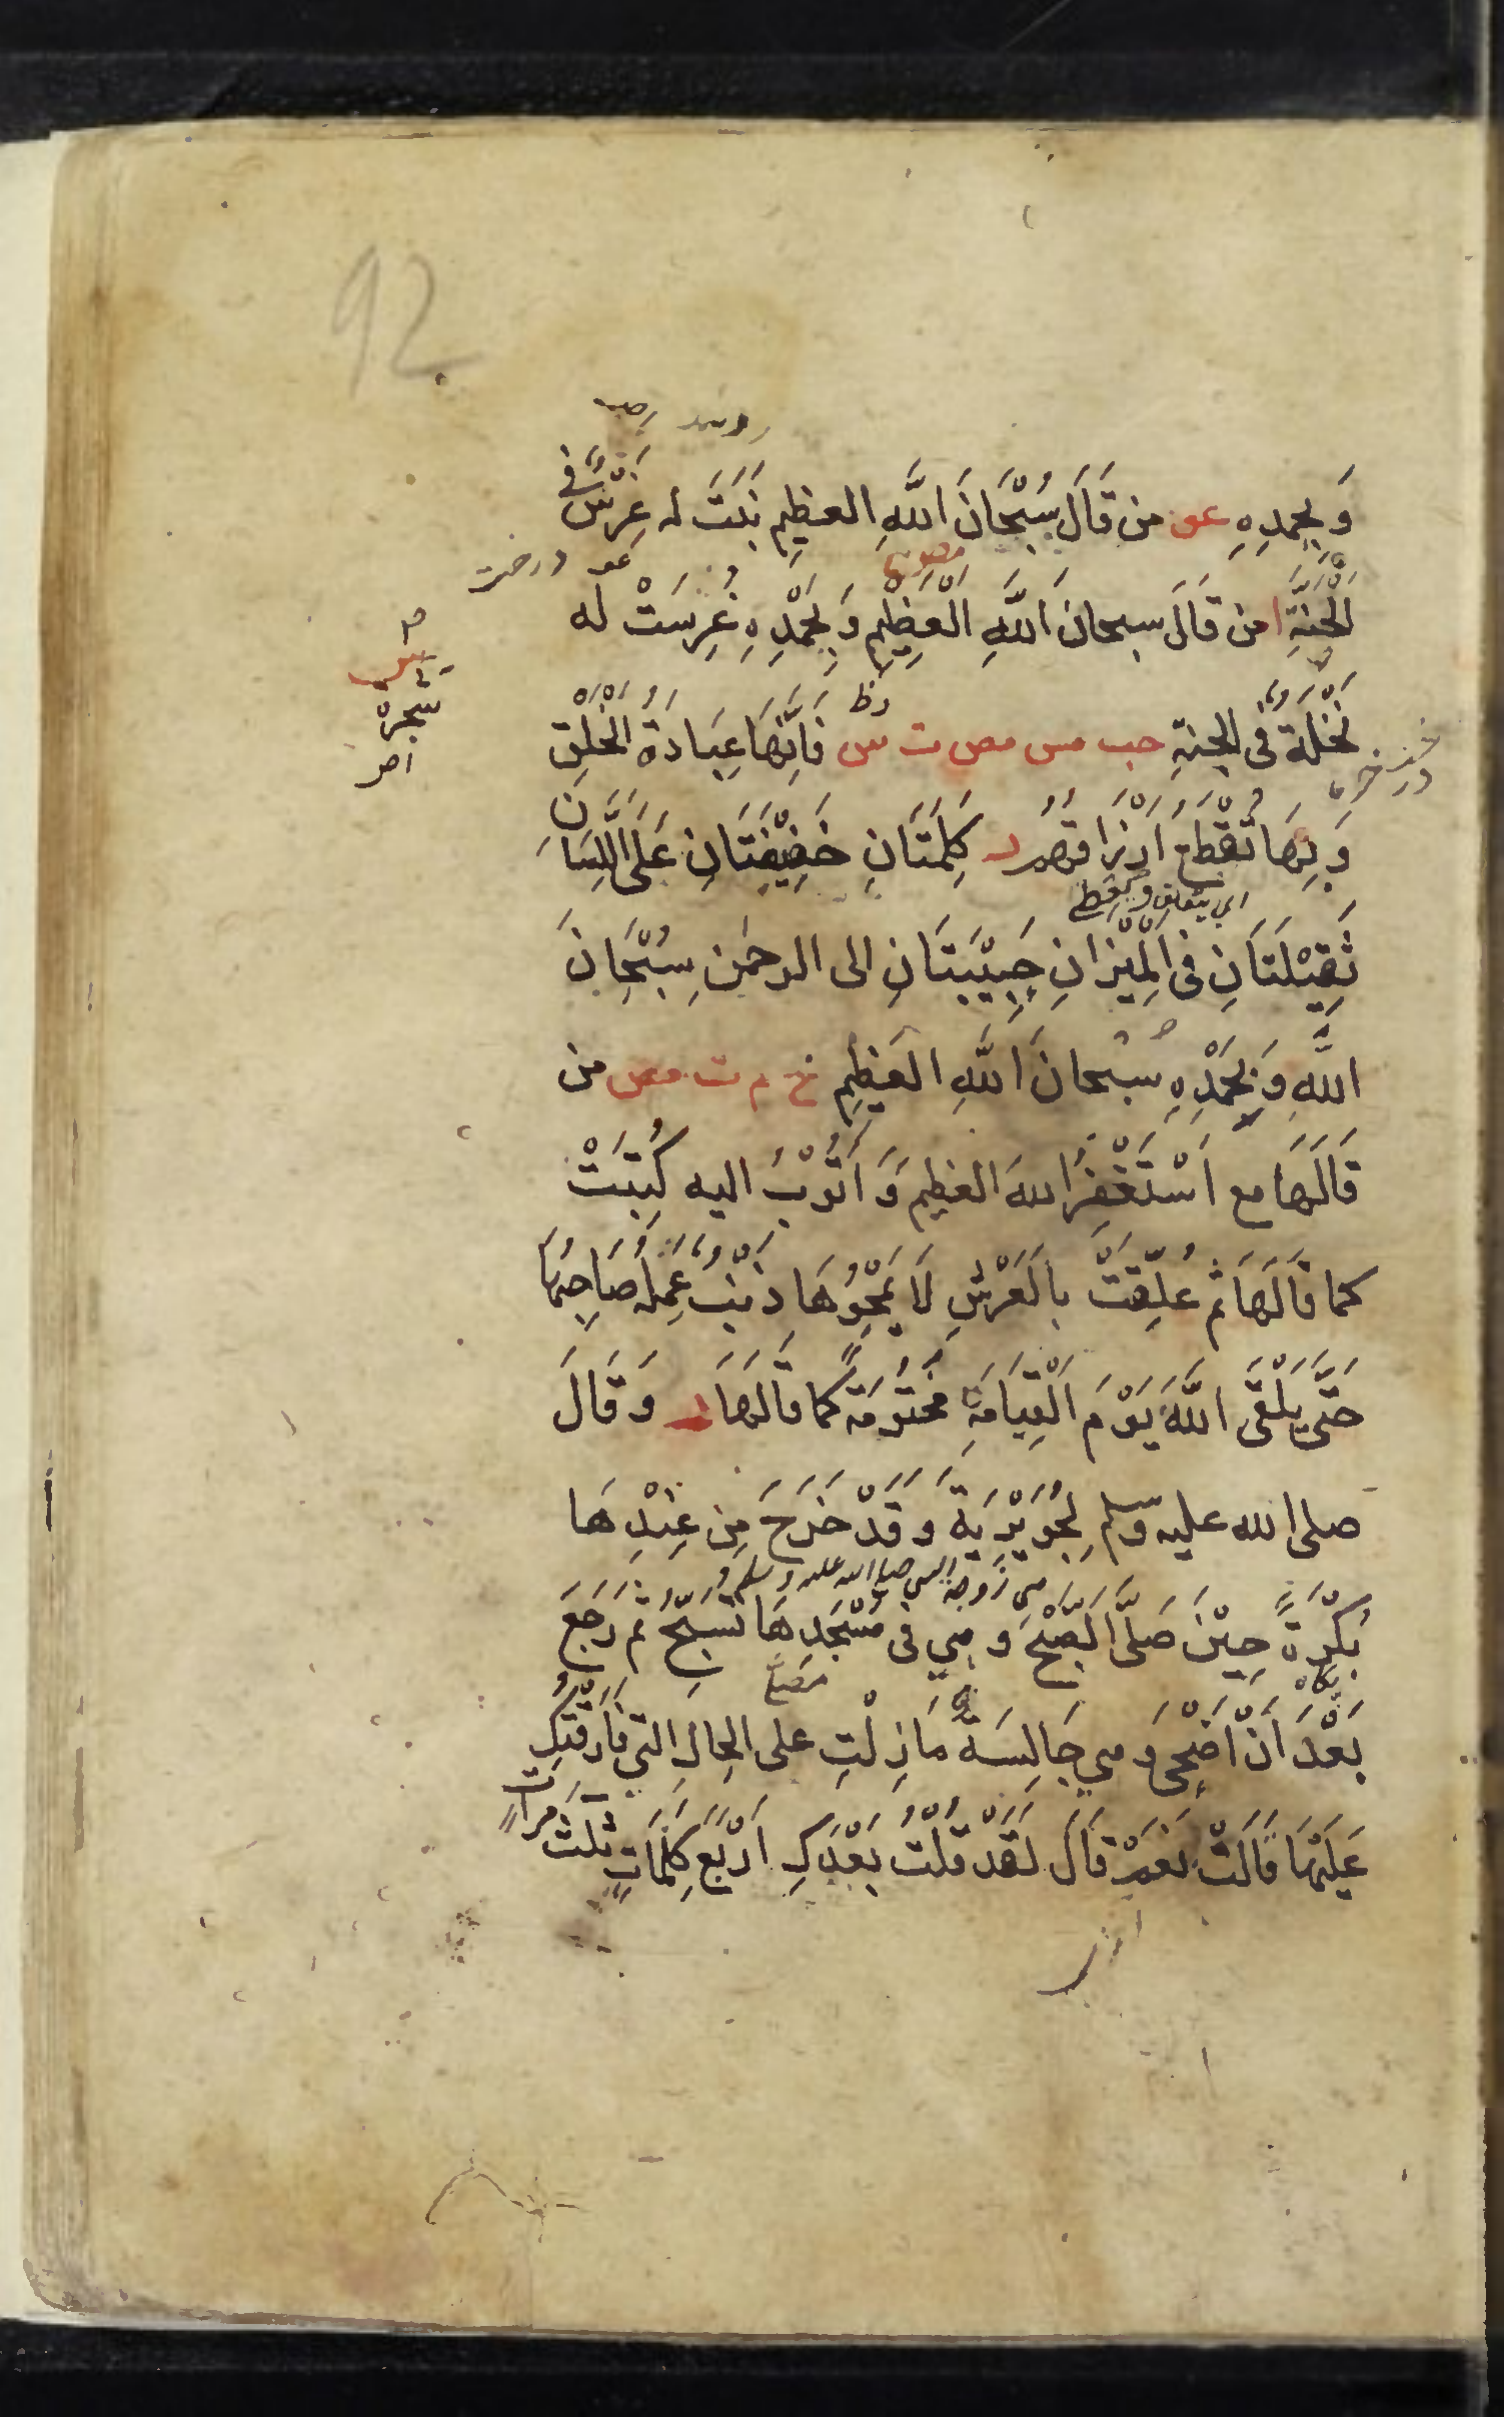 92
وَبِحَمْدِهِ عو من قَالَ سُبْحَانَ اللَّهِ العظِيمِ نَبَتَ لَه غِرْسٌ فى
عو درخت
الْجَنَّةِ ا من قَالَ سبحانَ اللَّهِ الْعَظِيْمِ وَبِحَمْدِهِ غُرِسَتْ له
شجرة
نَخْلَةٌ فى الجنةِ حب مس مص ت س فَاِنَّهَا عِبَادَةُ الْخَلْقِ
وَبِهَا تُقْطَعُ اَرْزَاقهُم ر كَلِمَتَانِ خَفِيْفَتَانِ عَلَى اللِّسَانِ
ثَقِيْلَتَانِ فى الْمِيْزَانِ حَبِيْبَتَانِ الى الرحمٰنِ سُبْحَانَ
اللَّهِ وَبِحَمْدِهِ سُبْحانَ اللَّهِ العَظِيْمِ خ م ت مص من
قَالَهَا مع اَسْتَغْفِرُ اللهَ العظِيم وَاَتُوْبُ اليه كُتِبَتْ
كما قَالَهَا ثم عُلِّقَتْ بِالْعَرْشِ لَا يَمْحُوْهَا ذَنْبٌ عَمِلَهُ صَاحِبُهَا
حَتَّى يَلْقَى اللَّهَ يَوْمَ الْقِيَامَةِ مَخْتُوْمَةً كما قَالَهَا ر وَقَالَ
صلى الله عليه وسلم لِجُوَيْرِيَةَ وَقَدْ خَرَجَ مِن عِنْدِهَا
هي زوجة النبي صلى الله عليه وسلم
بُكْرَةً حِيْنَ صَلَّى الصُّبْحَ وَهي فى مَسْجِدِهَا تُسَبِّحُ ثُمَّ رَجَعَ
بَعْدَ اَنْ اَضْحَى وَهي جَالِسَةٌ مَا زِلْتِ على الحالِ التي فَارَقْتُكِ
عَلَيْهَا قَالَتْ نَعَمْ قَالَ لَقَدْ قُلْتُ بَعْدَكِ اَرْبَعَ كَلِمَاتٍ ثَلٰثَ مَرَّاتٍ